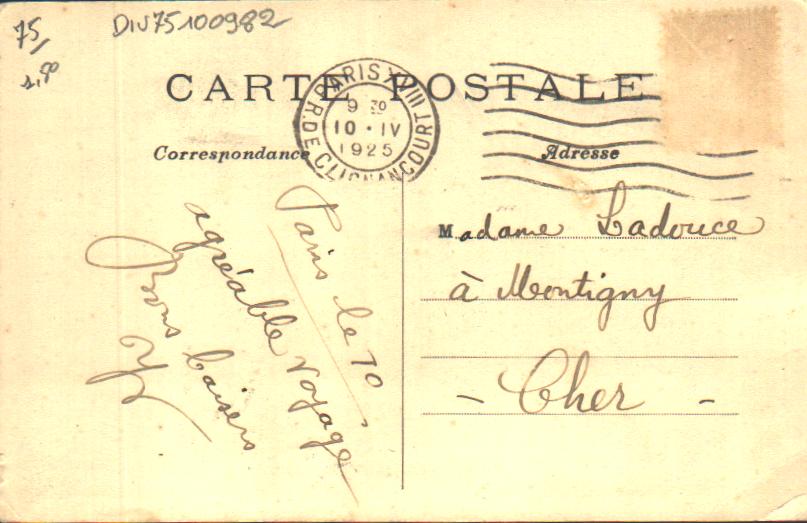 75/
DIV75100982
CARTE POSTALE
PARIS XVIII
R. DE CLIGNANCOURT
9 30
10 · IV
1925
Correspondance
Adresse
Paris le 10
agréable voyage
Bons baisers
Madame Ladouce
à Montigny
- Cher -